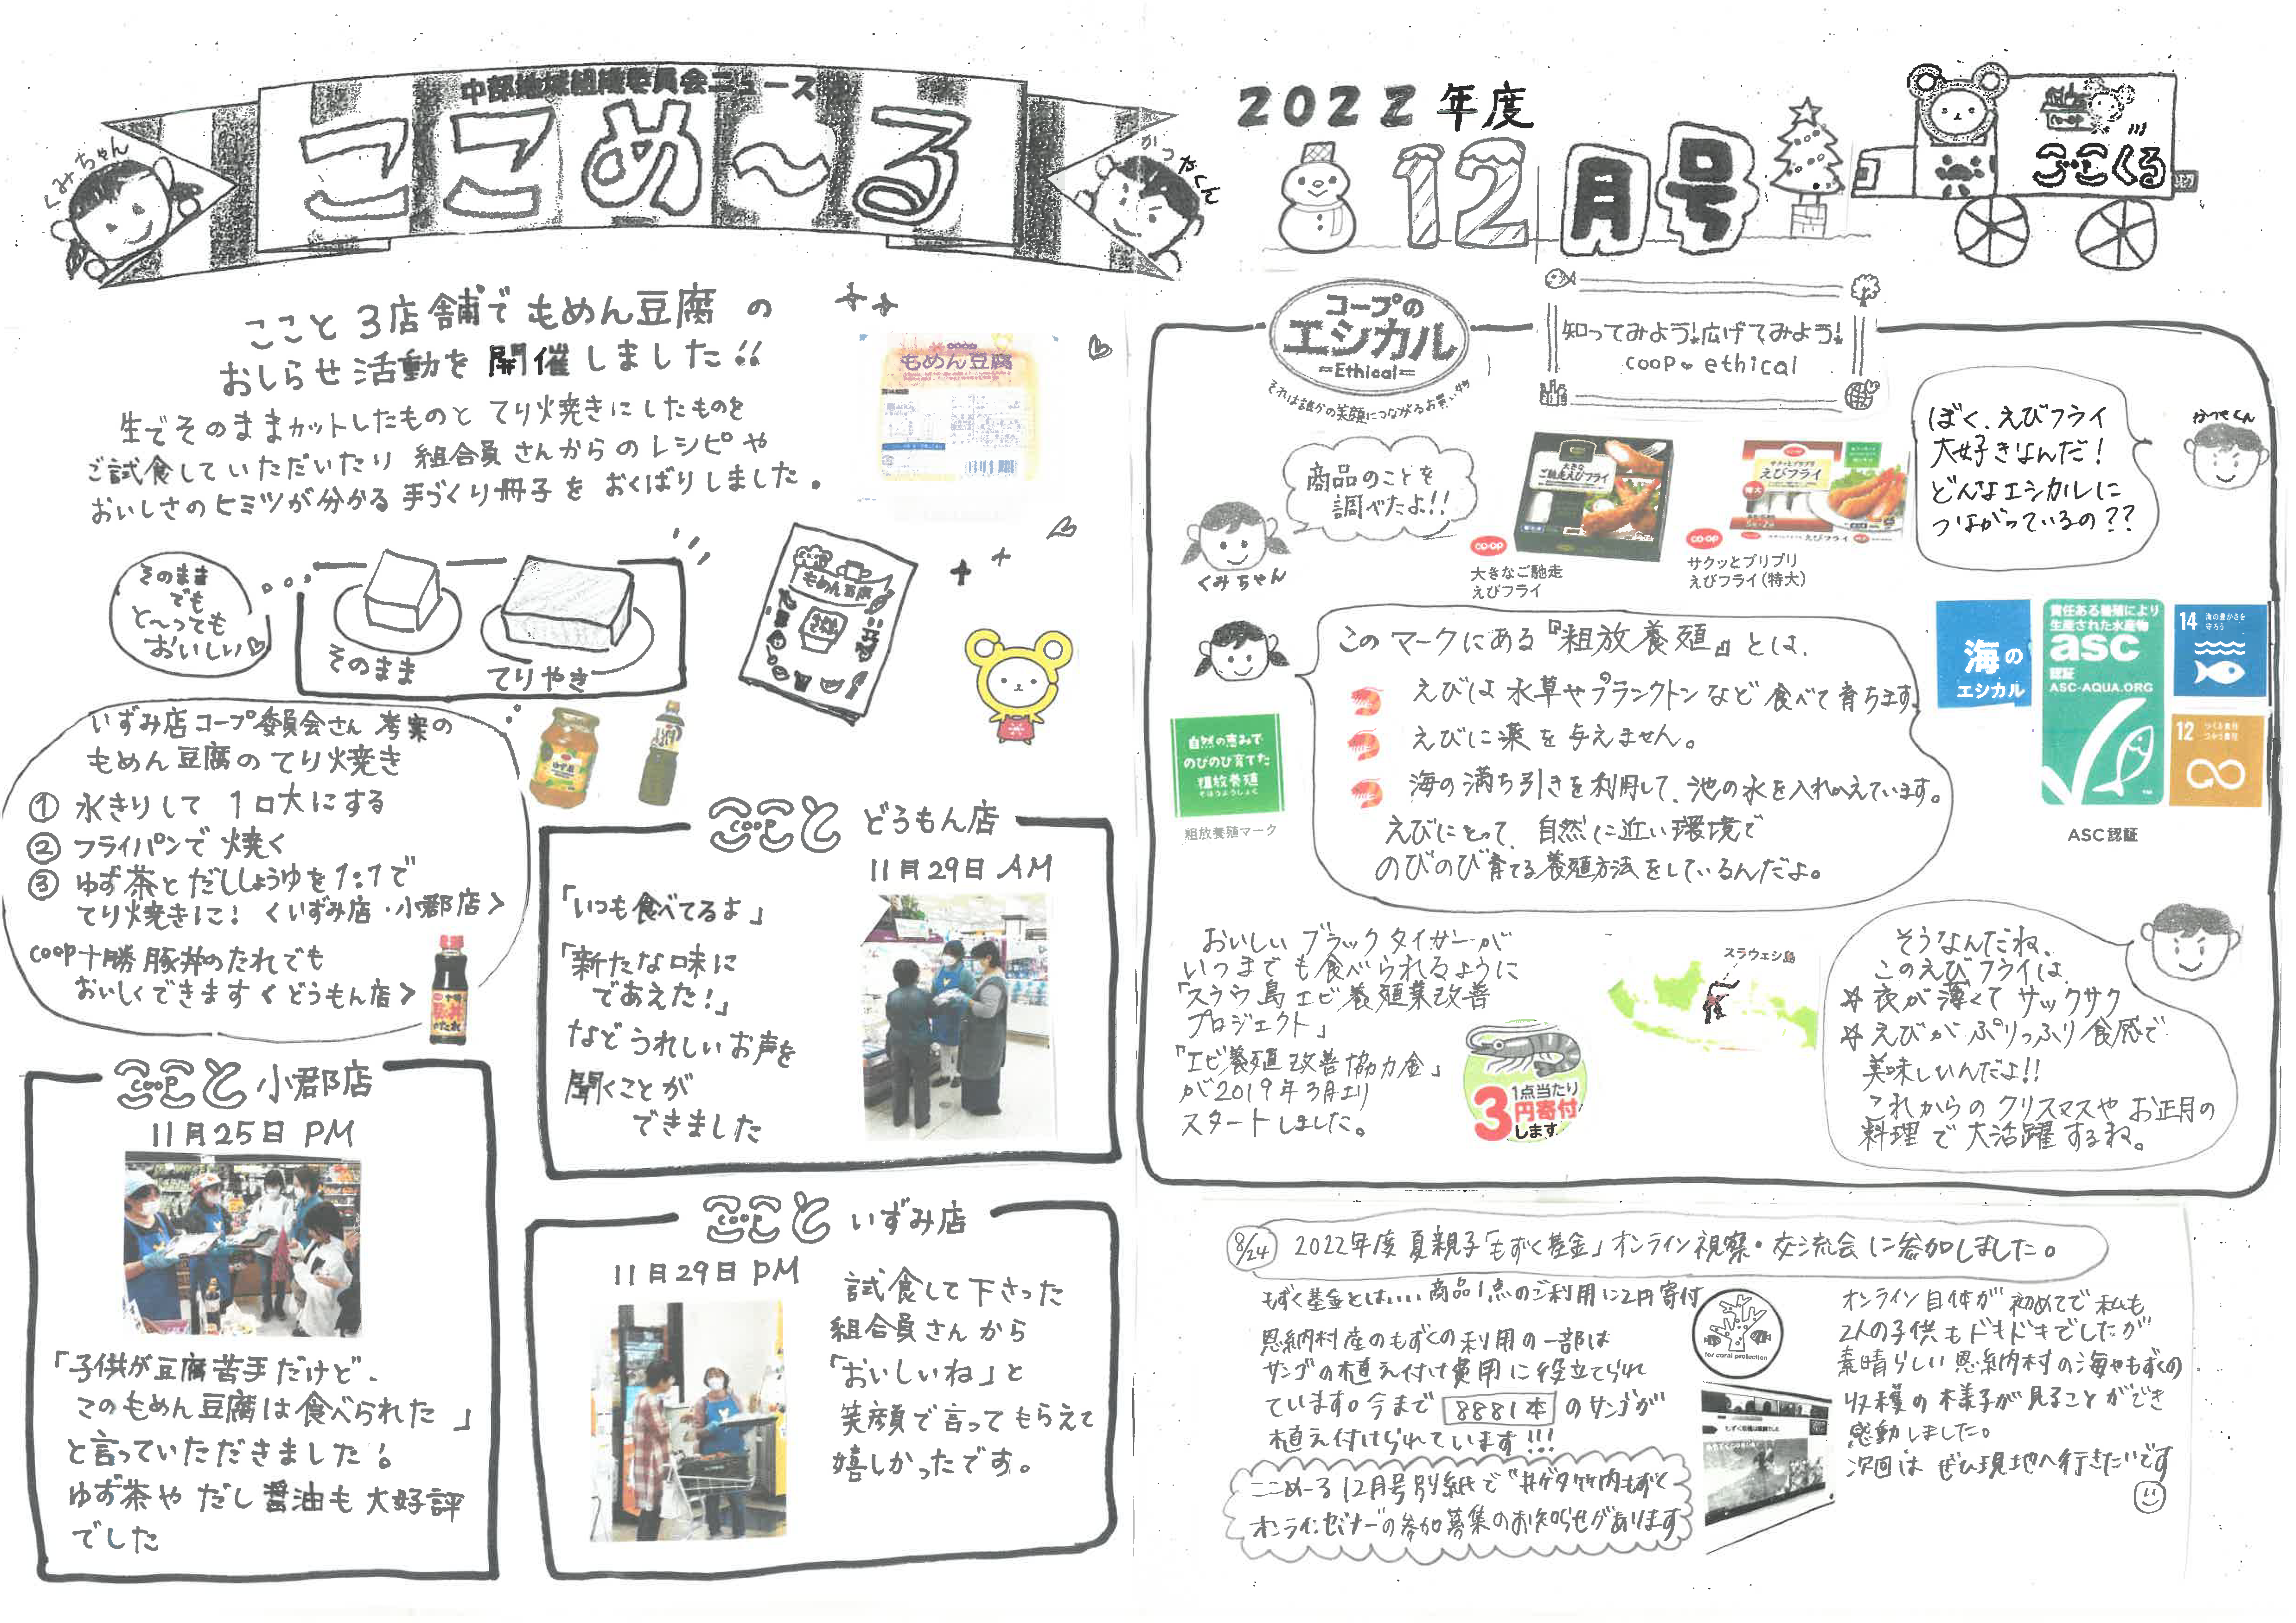 中部地域組織委員会ニュース
ここめ～る
くみちゃん
かつやくん
2022年度
12月号
ここくる
ここと3店舗でもめん豆腐の
おしらせ活動を開催しました!!
生でそのままカットしたものと てり焼きにしたものを
ご試食していただいたり 組合員さんからのレシピや
おいしさのヒミツが分かる 手づくり冊子を おくばりしました。
もめん豆腐
そのまま
でも
と～っても
おいしい♡
そのまま
てりやき
もめん豆腐
いずみ店コープ委員会さん 考案の
もめん豆腐のてり焼き
① 水きりして 1口大にする
② フライパンで 焼く
③ ゆず茶とだししょうゆを1:1で
てり焼きに! <いずみ店・小郡店>
coop十勝豚丼のたれでも
おいしくできます<どうもん店>
ここと coop どうもん店
11月29日 AM
「いつも食べてるよ」
「新たな味に
であえた!」
などうれしいお声を
聞くことが
できました
ここと coop 小郡店
11月25日 PM
「子供が豆腐苦手だけど、
このもめん豆腐は食べられた」
と言っていただきました!
ゆず茶や だし醤油も大好評
でした
ここと coop いずみ店
11月29日 PM
試食して下さった
組合員さんから
「おいしいね」と
笑顔で言ってもらえて
嬉しかったです。
コープの
エシカル
=Ethical=
それは誰かの笑顔につながるお買い物
知ってみよう!広げてみよう!
coop♥ethical
商品のことを
調べたよ!!
くみちゃん
大きな
ご馳走えびフライ
co-op
大きなご馳走
えびフライ
サクッとプリプリ
えびフライ
特大
co-op
サクッとプリプリ
えびフライ(特大)
ぼく、えびフライ
大好きなんだ!
どんなエシカルに
つながっているの??
かつやくん
このマークにある『粗放養殖』とは、
えびは水草やプランクトンなど食べて育ちます。
えびに薬を与えません。
海の満ち引きを利用して、池の水を入れかえています。
えびにとって、自然に近い環境で
のびのび育てる養殖方法をしているんだよ。
自然の恵みで
のびのび育てた
粗放養殖
そほうようしょく
粗放養殖マーク
海の
エシカル
責任ある養殖により
生産された水産物
asc
認証
ASC-AQUA.ORG
14 海の豊かさを
守ろう
12 つくる責任
つかう責任
ASC認証
おいしいブラックタイガーが
いつまでも食べられるように
「スラウェシ島エビ養殖業改善
プロジェクト」
「エビ養殖改善協力金」
が2019年3月より
スタートしました。
スラウェシ島
1点当たり
3円寄付
します
そうなんだね、
このえびフライは、
☆衣が薄くてサックサク
☆えびがぷりっぷり食感で
美味しいんだよ!!
これからのクリスマスやお正月の
料理で大活躍するね。
8/24 2022年度夏親子「もずく基金」オンライン視察・交流会に参加しました。
もずく基金とは…商品1点のご利用に2円寄付
恩納村産のもずくの利用の一部は
サンゴの植え付け費用に役立てられ
ています。今まで 8881本 のサンゴが
植え付けられています!!!
for coral protection
ここめーる12月号別紙で"井ゲタ竹内もずく
オンラインセミナー"の参加募集のお知らせがあります
オンライン自体が初めてで私も
2人の子供もドキドキでしたが
素晴らしい恩納村の海やもずくの
収穫の様子が見ることができ
感動しました。
次回はぜひ現地へ行きたいです